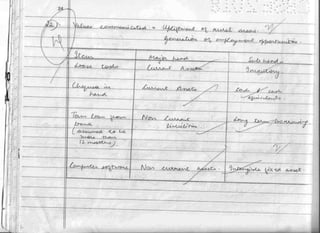 Values communicated → Upliftment of rural areas
Generation of employment opportunities.
Items Major head Sub head
Loose Tools Current Assets Inventory
Cheques in hand Current Assets Cash & cash equivalents
Term loan from bank (assumed to be more than 12 months) Non Current Liabilities Long term borrowing
Computer software Non current assets Intangible fixed asset